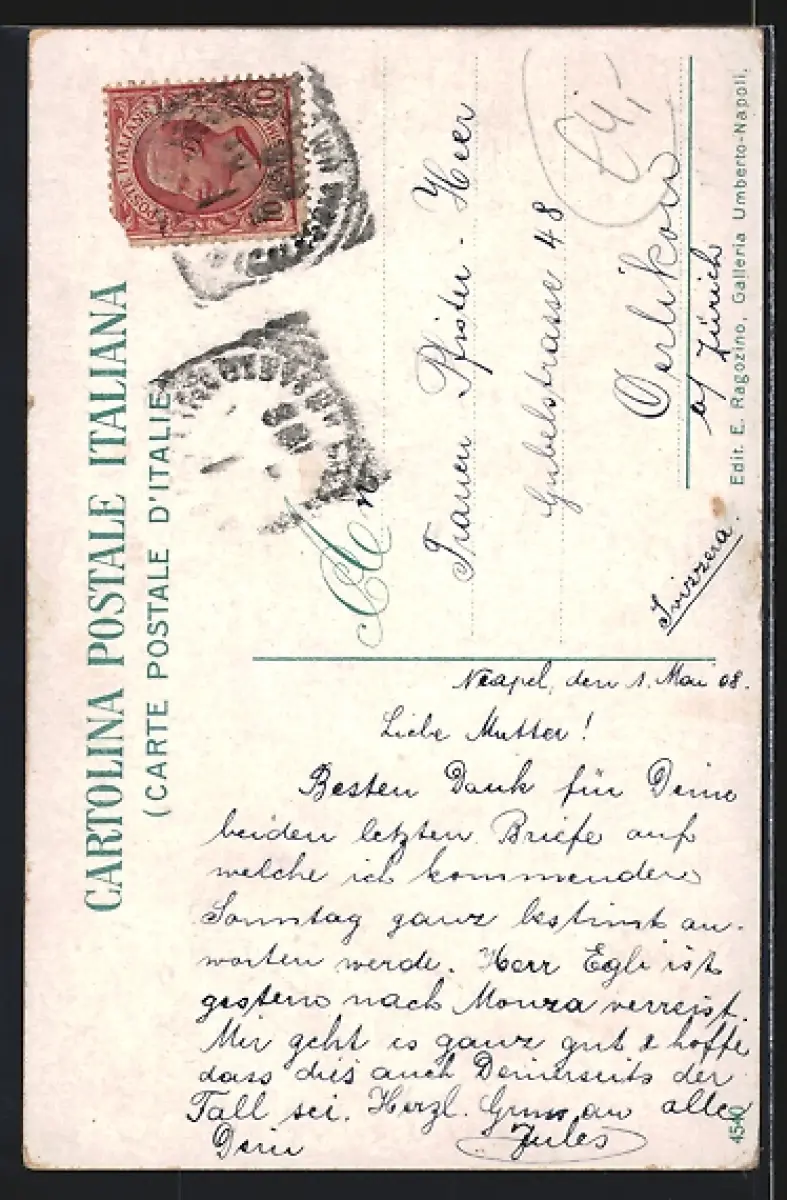 CARTOLINA POSTALE ITALIANA
(CARTE POSTALE D'ITALIE)
POSTE ITALIANE
10 CENTESIMI 10
A
n
Frauen Pfister - Heer
Gubelstrasse 48
Oerlikon
a/ Zürich
Svizzera.
Edit. E. Ragozino, Galleria Umberto-Napoli.
Neapel, den 1. Mai 08.
Liebe Mutter!
Besten Dank für Deine
beiden letzten Briefe auf
welche ich kommenden
Sonntag ganz bestimt an-
worten werde. Herr Egli ist
gestern nach Monza verreist.
Mir geht es ganz gut & hoffe
dass dies auch Deinerseits der
Fall sei. Herzl. Gruss an alle
Dein Jules
4540